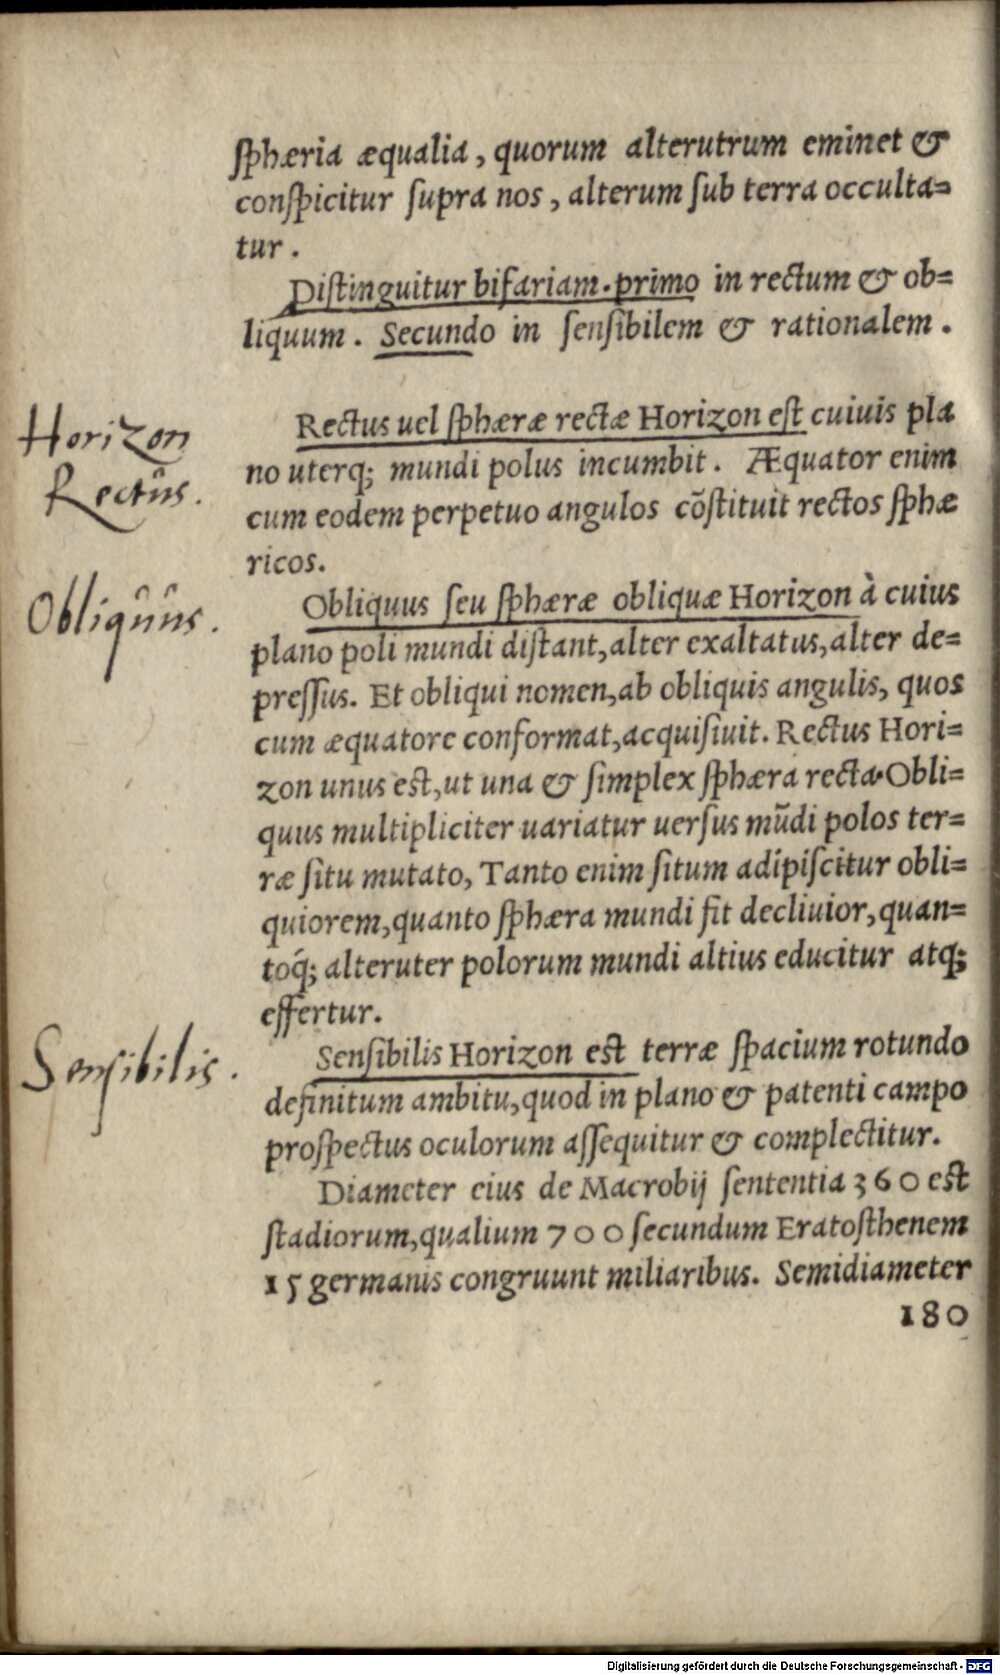 ſphæria æqualia, quorum alterutrum eminet &
conſpicitur ſupra nos, alterum ſub terra occulta=
tur.
Diſtinguitur bifariam. primo in rectum & ob=
liquum. Secundo in ſenſibilem & rationalem.
Horizon
Rectus.
Rectus uel ſphæræ rectæ Horizon eſt cuiuis pla
no uterq; mundi polus incumbit. Æquator enim
cum eodem perpetuo angulos cõſtituit rectos ſphæ
ricos.
Obliquus.
Obliquus ſeu ſphæræ obliquæ Horizon à cuius
plano poli mundi diſtant, alter exaltatus, alter de=
preſſus. Et obliqui nomen, ab obliquis angulis, quos
cum æquatore conformat, acquiſiuit. Rectus Hori=
zon unus eſt, ut una & ſimplex ſphæra recta. Obli=
quus multipliciter uariatur uerſus mũdi polos ter=
ræ ſitu mutato, Tanto enim ſitum adipiſcitur obli=
quiorem, quanto ſphæra mundi fit decliuior, quan=
toq́; alteruter polorum mundi altius educitur atq;
effertur.
Sensibilis.
Senſibilis Horizon eſt terræ ſpacium rotundo
definitum ambitu, quod in plano & patenti campo
proſpectus oculorum aſſequitur & complectitur.
Diameter eius de Macrobij ſententia 360 eſt
ſtadiorum, qualium 700 ſecundum Eratoſthenem
15 germanis congruunt miliaribus. Semidiameter
180
Digitalisierung gefördert durch die Deutsche Forschungsgemeinschaft - DFG